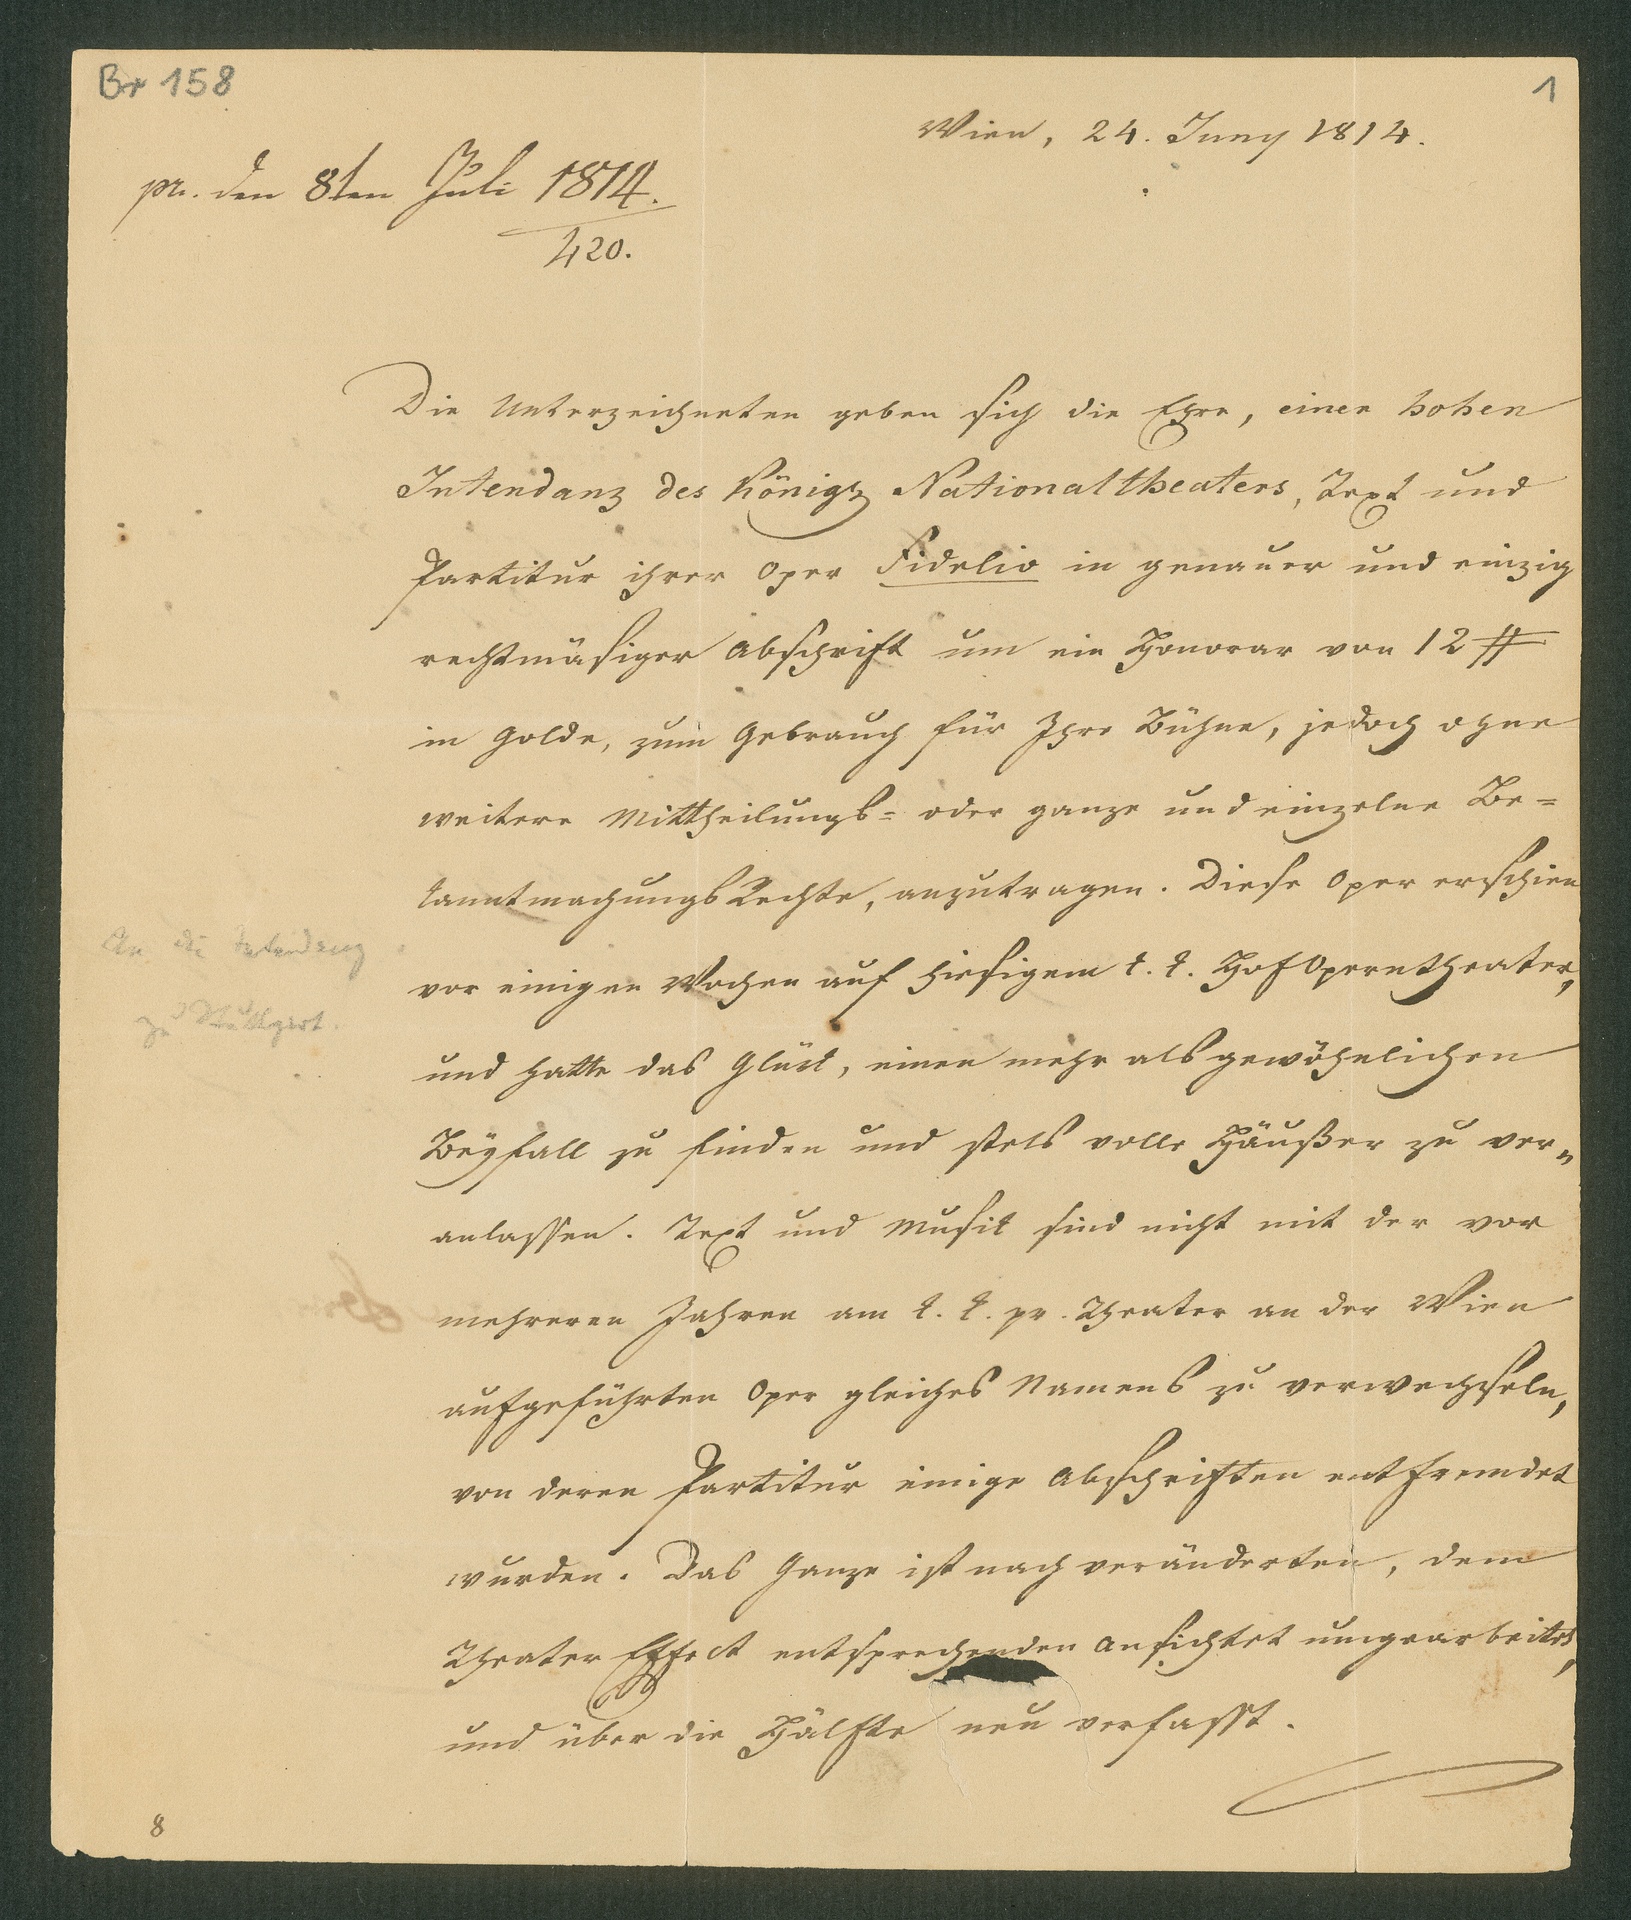 Br 158
1
Wien, 24. Juny 1814.
pr. den 8ten Juli 1814.
420.
Die Unterzeichneten geben sich die Ehre, einer hohen
Intendanz des Königl Nationaltheaters, Text und
Partitur ihrer Oper Fidelio in genauer und einzig
rechtmäsiger Abschrift um ein Honorar von 12 #
in Golde, zum Gebrauch für Ihre Bühne, jedoch ohne
weitere Mittheilungs= oder ganze und einzelne Be=
kanntmachungsRechte, anzutragen. Diese Oper erschien
vor einigen Wochen auf hiesigem k. k. HofOperntheater,
und hatte das Glück, einen mehr als gewöhnlichen
Beyfall zu finden und stets volle Häußer zu ver=
anlassen. Text und Musik sind nicht mit der vor
mehreren Jahren am k. k. pr. Theater an der Wien
aufgeführten Oper gleiches Namens zu verwechseln,
von deren Partitur einige Abschriften entfremdet
wurden. Das Ganze ist nach veränderten, dem
Theater Effect entsprechenden Ansichtet umgearbeitet,
und über die Hälfte neu verfasst.
An die Intendanz
zu Stuttgart.
8